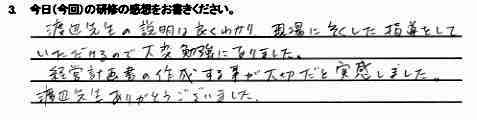 3. 今日(今回)の研修の感想をお書きください。
渡辺先生の説明は良くわかり 現場に即した指導をして
いただけるので大変勉強になりました。
経営計画書の作成する事が大切だと実感しました。
渡辺先生ありがとうございました。